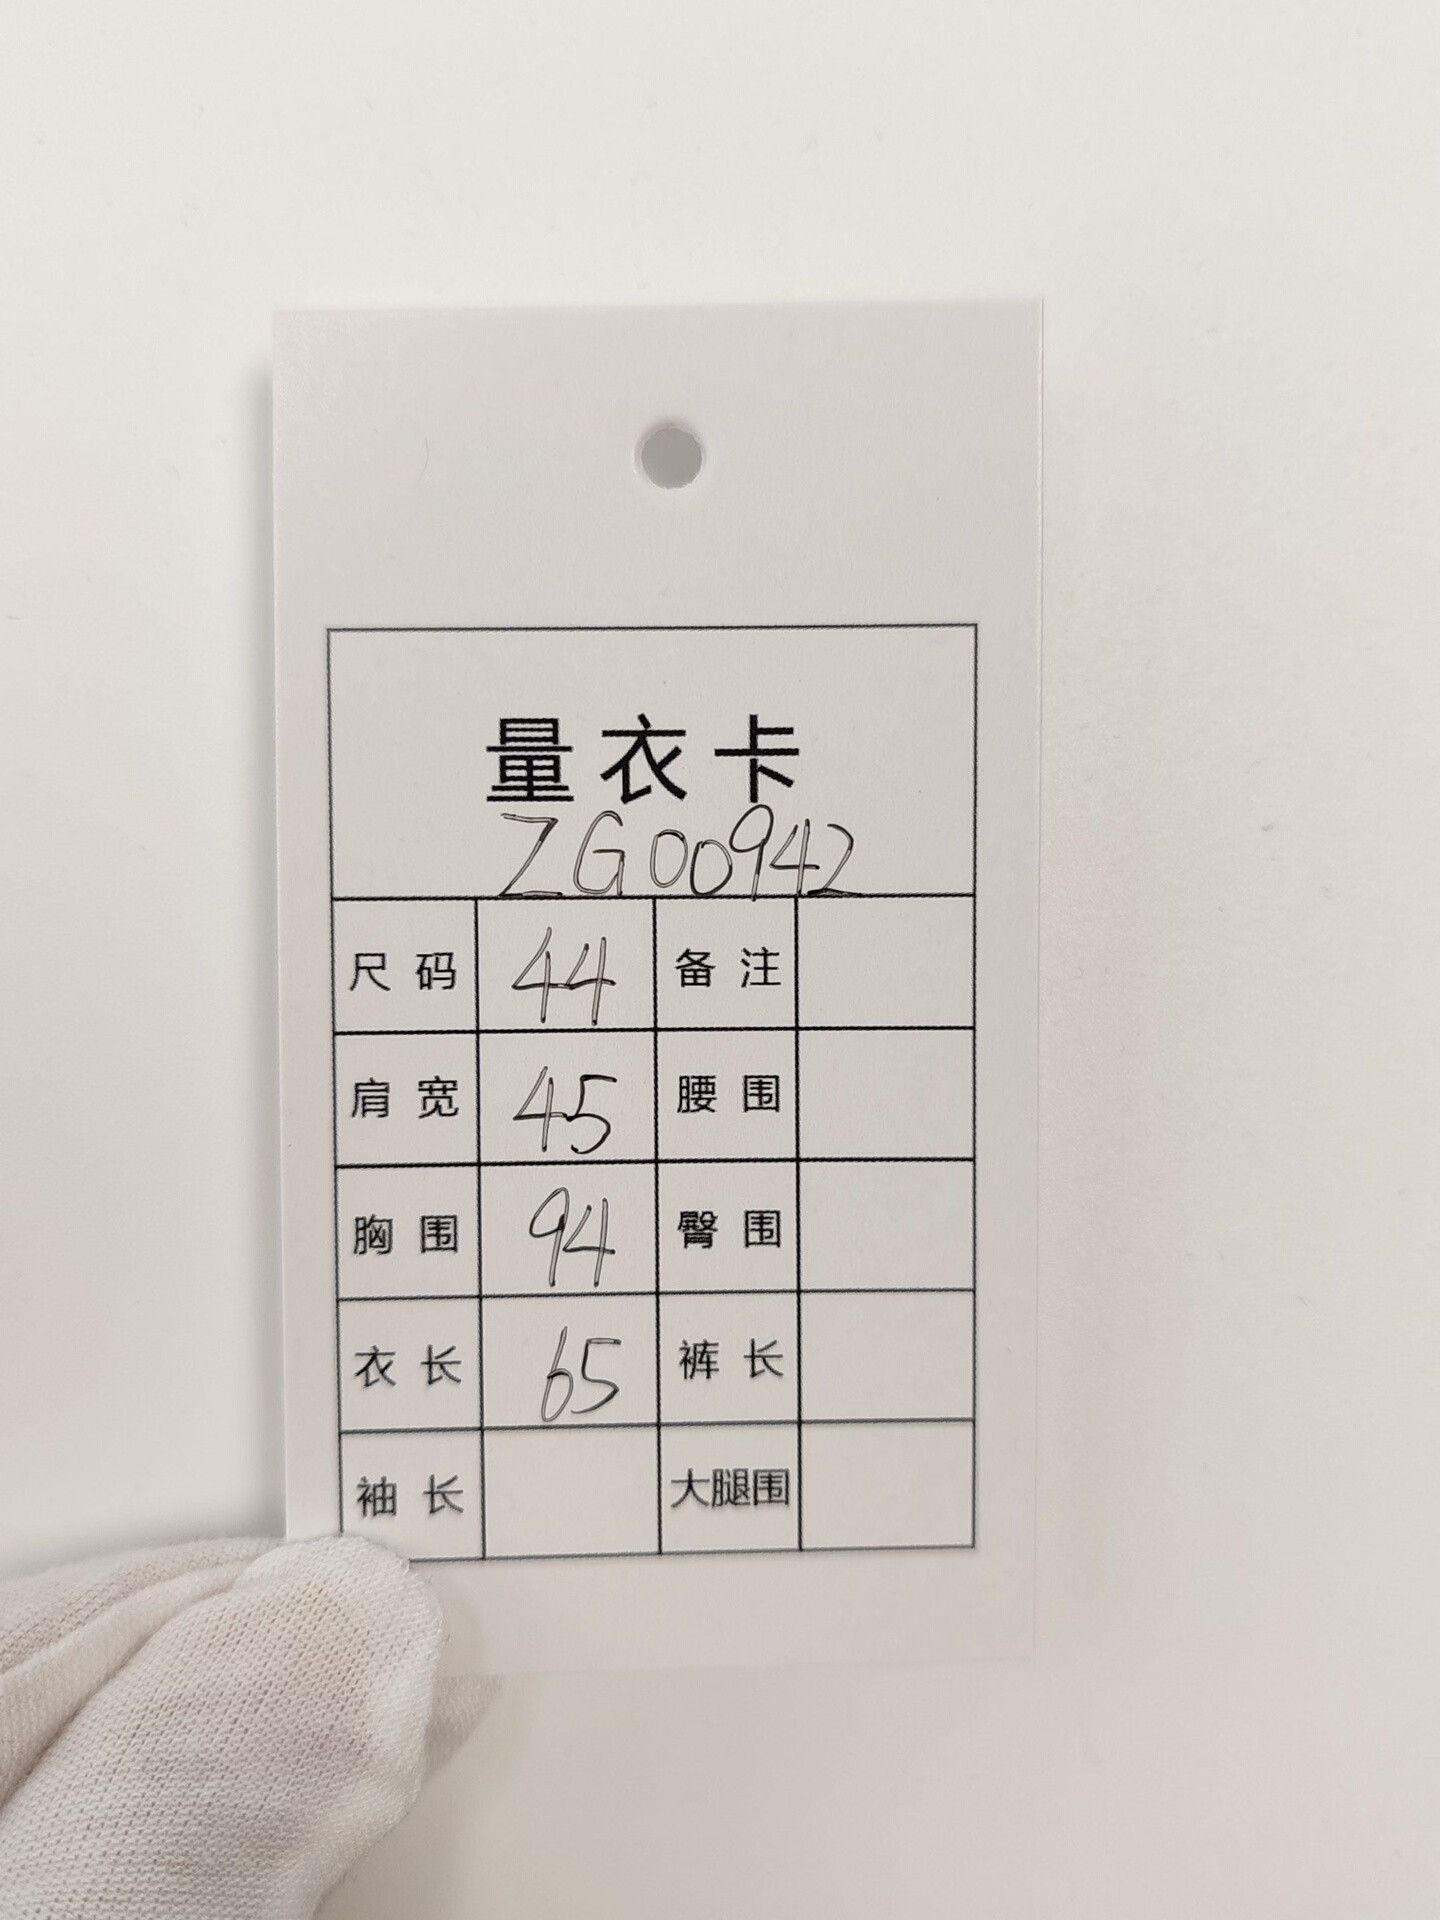 量衣卡
ZG00942
尺码 44 备注
肩宽 45 腰围
胸围 94 臀围
衣长 65 裤长
袖长 大腿围